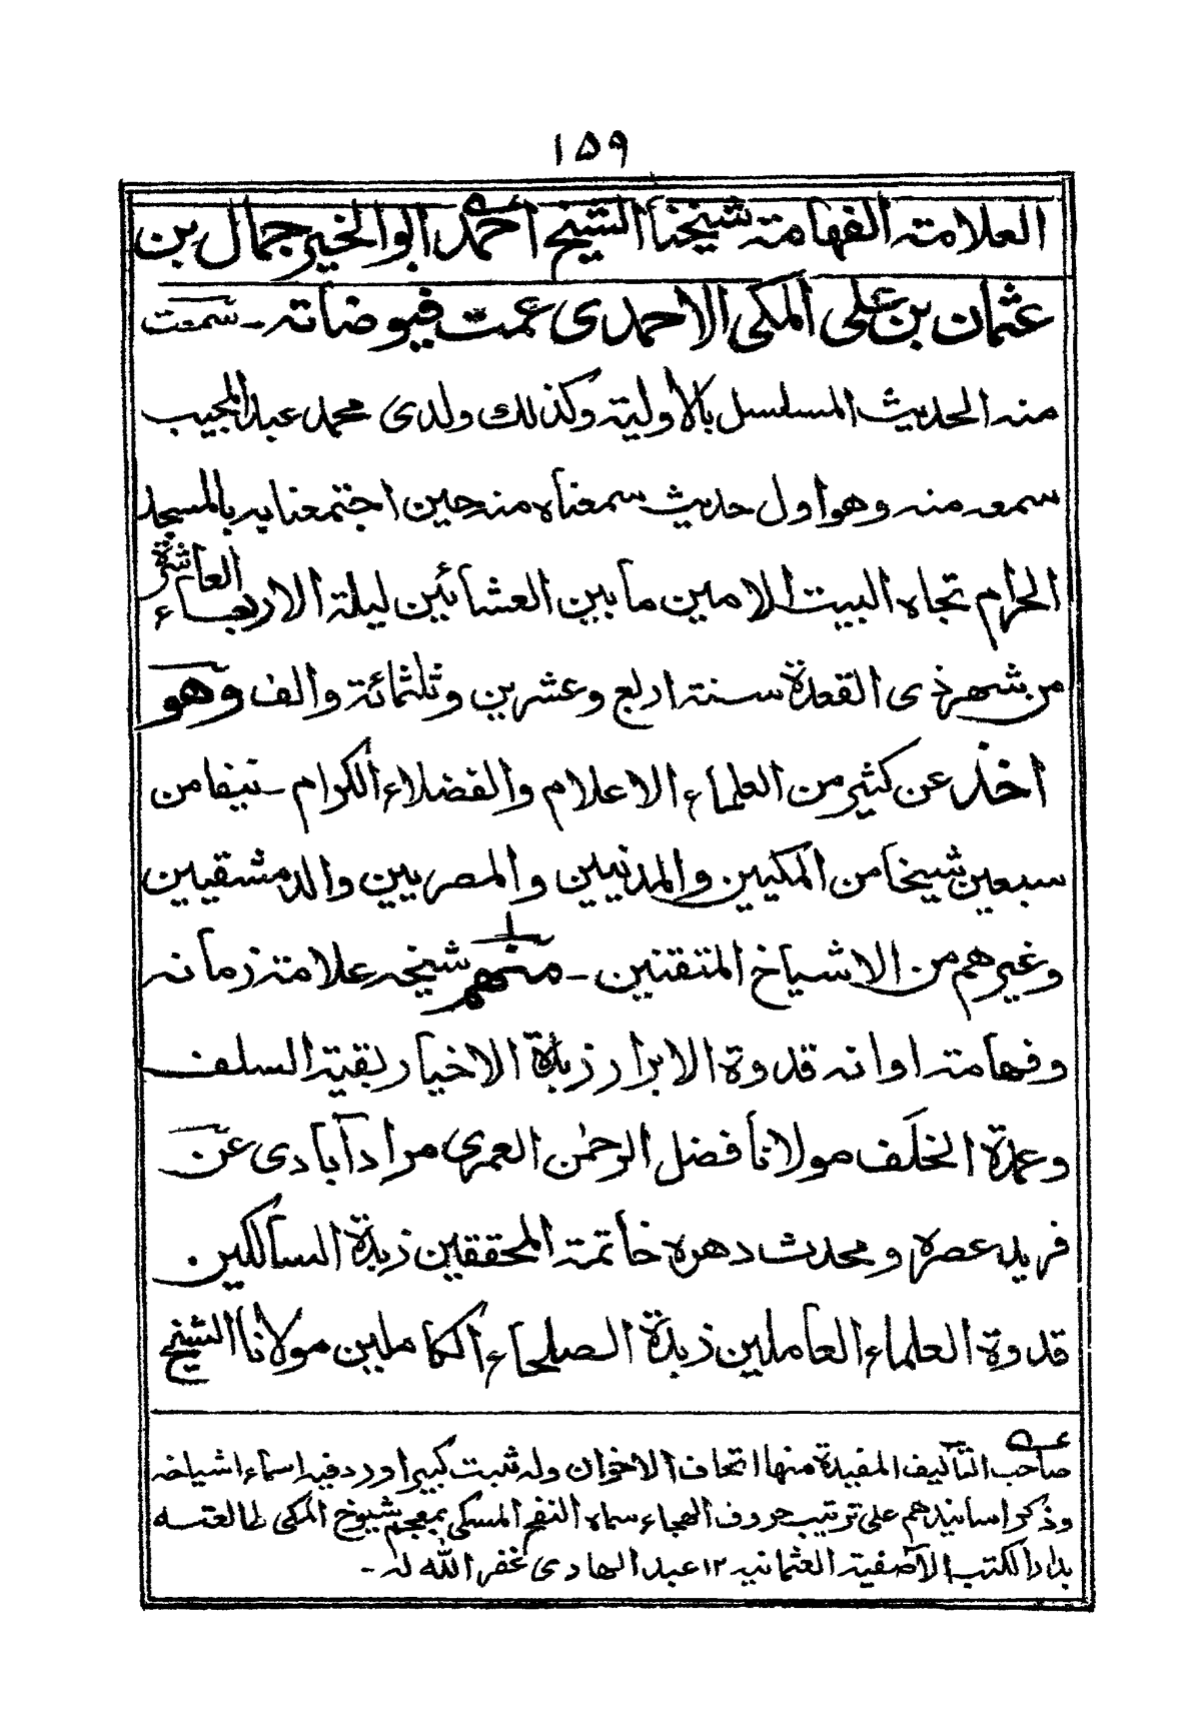 ١٥٩
العلامة الفهامة شيخنا الشيخ احمد ابو الخير جمال بن
عثمان بن على المكى الاحمدى عمت فيوضاته ـ سمعت
منه الحديث المسلسل بالأولية وكذلك ولدى محمد عبد المجيب
سمعه منه وهو اول حديث سمعناه منه حين اجتمعنا به بالمسجد
الحرام تجاه البيت الامين ما بين العشائين ليلة الاربعاء العاشرة
من شهر ذى القعدة سنة اربع وعشرين وثلثمائة والف وهو
اخذ عن كثير من العلماء الاعلام والفضلاء الكرام ـ نيفا من
سبعين شيخا من المكيين والمدنيين والمصريين والدمشقيين
وغيرهم من الاشياخ المتقنين ـ منهم شيخه علامة زمانه
وفهامة اوانه قدوة الابرار زبدة الاخيار بقية السلف
وعمدة الخلف مولانا فضل الرحمٰن العمرى مرادآبادى عن
فريد عصره ومحدث دهره خاتمة المحققين زبدة السالكين
قدوة العلماء العاملين زبدة الصلحاء الكاملين مولانا الشيخ
صاحب التآليف المفيدة منها اتحاف الاخوان وله ثبت كبير اورد فيه اسماء اشياخه
وذكر اسانيدهم على ترتيب حروف الهجاء سماه النفح المسكى بمعجم شيوخ المكى طالعته
بدار الكتب الآصفية العثمانيه ١٢ عبد الهادى غفر الله له ـ